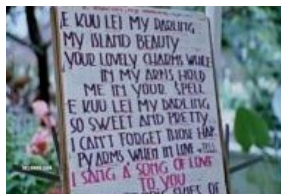 E KUU LEI MY DARLING
MY ISLAND BEAUTY
YOUR LOVELY CHARMS WHILE
IN MY ARMS HOLD
ME IN YOUR SPELL
E KUU LEI MY DARLING
SO SWEET AND PRETTY
I CAN'T FORGET THOSE HAP
PY ARMS WHEN IN LOVE I FELL
I SANG A SONG OF LOVE
TO YOU
OF